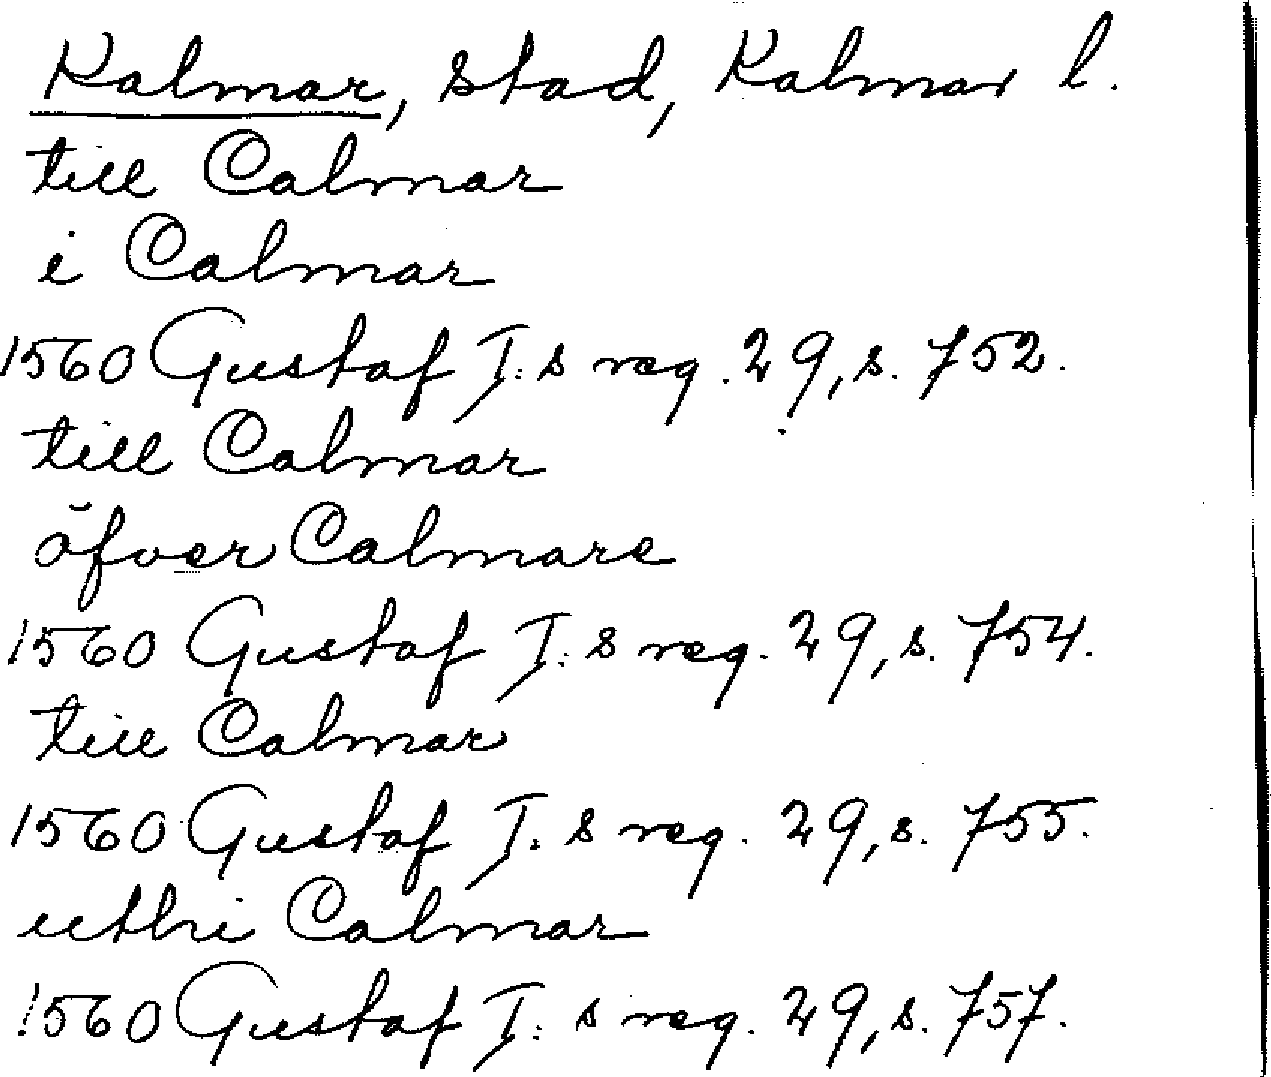 Kalmar, stad, Kalmar l.
till Calmar
i Calmar
1560 Gustaf I:s reg. 29, s. 752.
till Calmar
öfver Calmare
1560 Gustaf I:s reg. 29, s. 754.
till Calmar
1560 Gustaf I:s reg. 29, s. 755.
uthi Calmar
1560 Gustaf I:s reg. 29, s. 757.